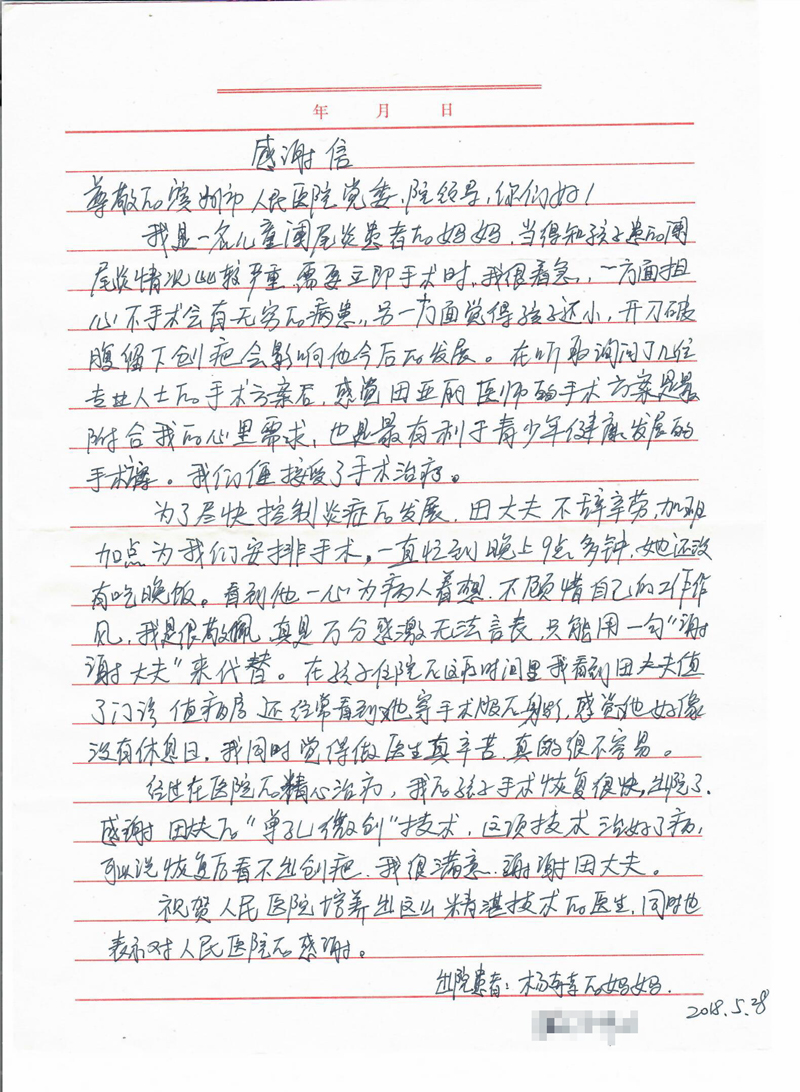 年 月 日
感谢信
尊敬的滨州市人民医院党委、院领导,你们好!
我是一名儿童阑尾炎患者的妈妈,当得知孩子患的阑
尾炎情况比较严重,需要立即手术时,我很着急,一方面担
心不手术会有无穷的病患,另一方面觉得孩子还小,开刀破
腹留下创疤会影响他今后的发展。在听取询问了几位
专业人士的手术方案后,感觉田亚丽医师的手术方案是最
附合我的心里需求,也是最有利于青少年健康发展的
手术。我们便接受了手术治疗。
为了尽快控制炎症的发展,田大夫不辞辛劳,加班
加点为我们安排手术,一直忙到晚上9点多钟,她还没
有吃晚饭。看到他一心为病人着想,不顾惜自己的工作作
风,我是很敬佩,真是万分感激无法言表,只能用一句"谢
谢大夫"来代替。在孩子住院的这段时间里我看到田大夫值
了门诊值病房还经常看到她穿手术服的身影,感觉她好像
没有休息日,我同时觉得做医生真辛苦,真的很不容易。
经过在医院的精心治疗,我的孩子手术恢复很快,出院了,
感谢田大夫的"单孔微创"技术,这项技术治好了病,
可以说恢复后看不出创疤,我很满意,谢谢田大夫。
祝贺人民医院培养出这么精湛技术的医生,同时也
表示对人民医院的感谢。
出院患者:杨的妈妈.
2018.5.28